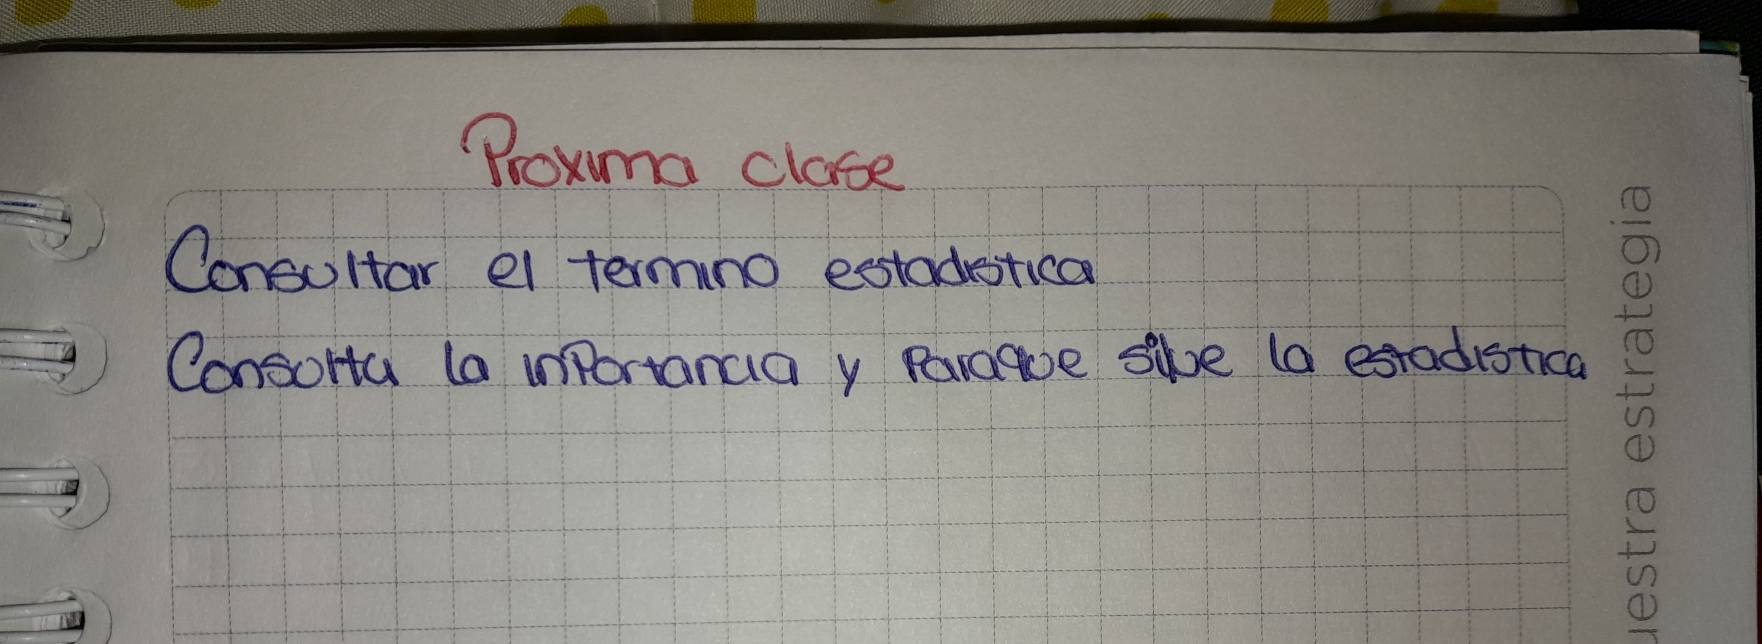 Proxima clase
Consultar el termino estadistica
Consulta la inportancia y Paraque sive la estadistica
uestra estrategia